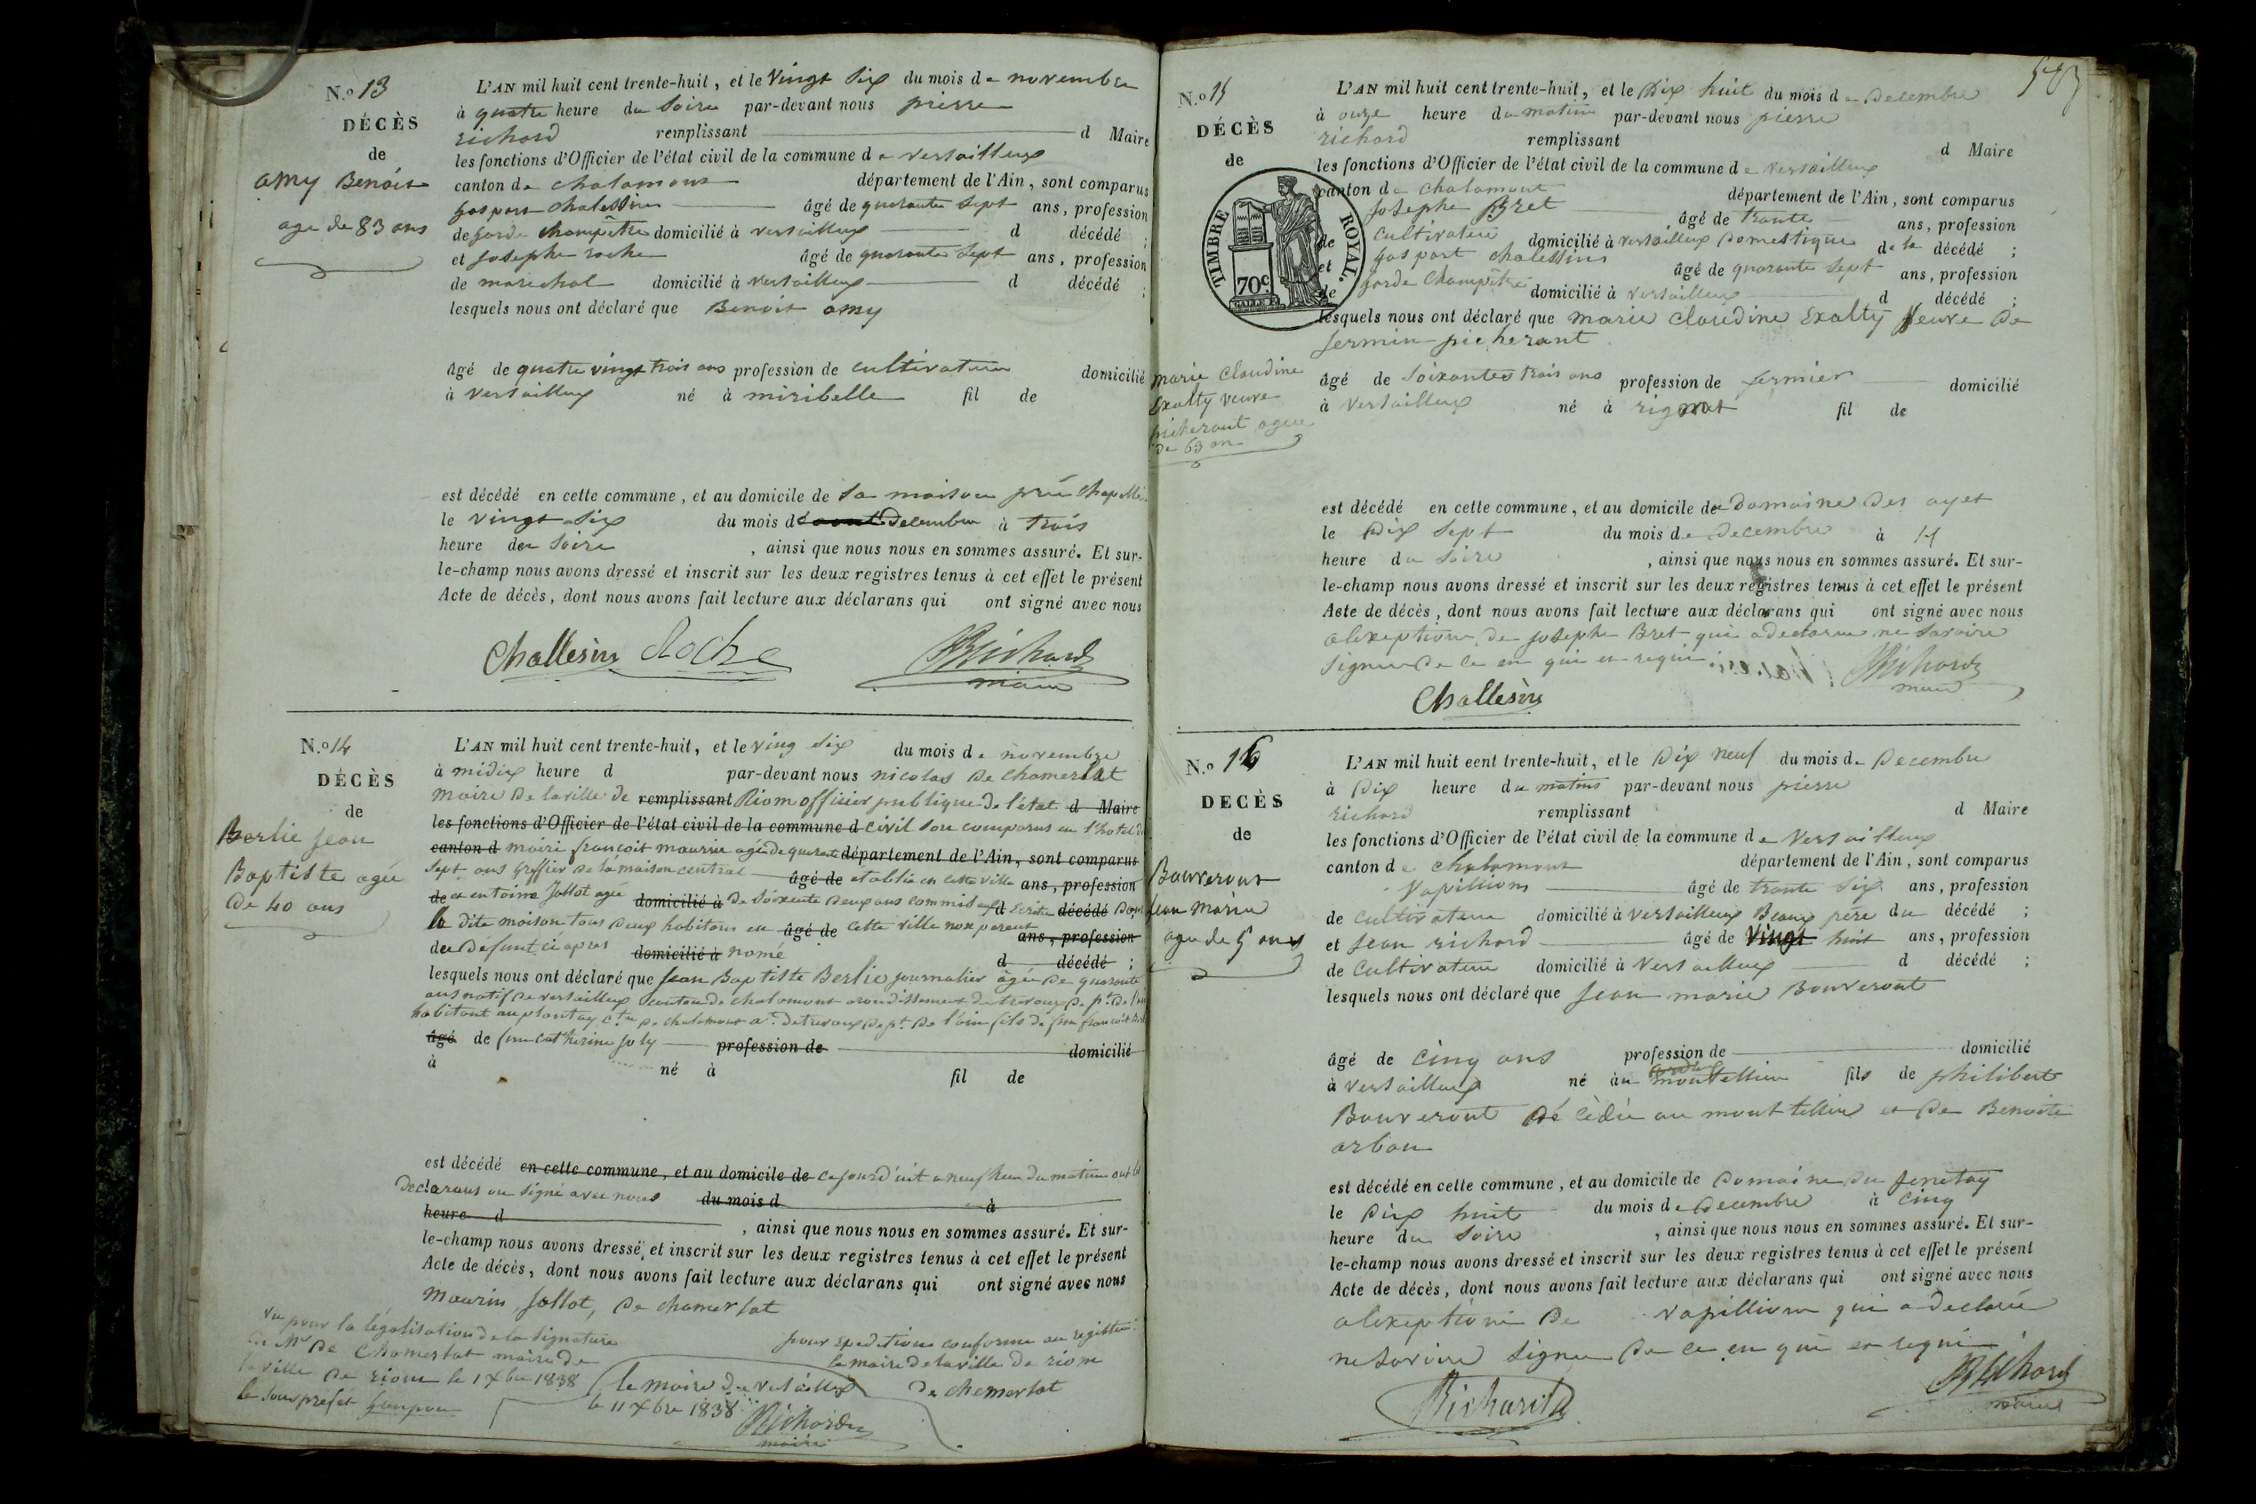 N.º 13
DÉCÈS
de
amy Benoit
age de 83 ans
L'AN mil huit cent trente-huit, et le vingt six du mois de novembre
à quatre heure du soire par-devant nous pierre
richard remplissant d Maire
les fonctions d'Officier de l'état civil de la commune de versailleux
canton de chalamont département de l'Ain, sont comparus
gaspart chalessin âgé de quarante sept ans, profession
de garde champêtre domicilié à versailleux d décédé ;
et josephe roche âgé de quarante sept ans, profession
de marechal domicilié à versailleux d décédé ;
lesquels nous ont déclaré que Benoit amy
âgé de quatre vingt trois ans profession de cultivateur domicilié
à versailleux né à miribelle fil de
est décédé en cette commune, et au domicile de sa maison
le vingt six du mois d decembre à trois
heure du soire , ainsi que nous nous en sommes assuré. Et sur-
le-champ nous avons dressé et inscrit sur les deux registres tenus à cet effet le présent
Acte de décès, dont nous avons fait lecture aux déclarans qui ont signé avec nous
Challesin Roche Richard
maire
N.º 14
DÉCÈS
de
Berlie jean
Baptiste agée
de 40 ans
L'AN mil huit cent trente-huit, et le ving six du mois de novembre
à midix heure d par-devant nous nicolas de chamerlat
maire de la ville de remplissant Riom officier publique de l'état d Maire
les fonctions d'Officier de l'état civil de la commune d civil son comparus en l'hotel de
canton d mairi francoit maurin agé de quarante département de l'Ain, sont comparus
sept ans greffier de la maison central âgé de etablie en cette ville ans, profession
de et entoine Jallot agée domicilié à de soixente deux ans commis d décédé
la dite maison tous deux habitans en âgé de cette ville non parent ans, profession
du defunt ci apres domicilié à nomé d décédé ;
lesquels nous ont déclaré que jean Baptiste Berlie journalier agée de quarante
ans natif de versailleux canton de chalamont arondissement de trevoux
habitant au plantay de chalamont de trevoux de l'ain fils de
âgé de catherine joly profession de domicilié
à né à fil de
est décédé en cette commune, et au domicile de cejourd'uit a neuf heure du matin
declarans on signé avec nous du mois d à
heure d , ainsi que nous nous en sommes assuré. Et sur-
le-champ nous avons dressé et inscrit sur les deux registres tenus à cet effet le présent
Acte de décès, dont nous avons fait lecture aux déclarans qui ont signé avec nous
maurin, jallot, de chamerlat
vu pour la légalisation de la signature
de Mr de Chamerlat maire de
la ville de riom le 1 xbre 1838
le sous prefet
pour expedition conforme au registre
le maire de la ville de riom
de chamerlat
le maire de versailleux
le 11 xbre 1838
Richard
maire
583
N.º 15
DÉCÈS
de
TIMBRE ROYAL.
70c.
marie claudine
Exalty veuve
picherant agee
de 63 an
L'AN mil huit cent trente-huit, et le Dix huit du mois de Decembre
à onze heure du matin par-devant nous pierre
richard remplissant d Maire
les fonctions d'Officier de l'état civil de la commune de versailleux
canton de chalamont département de l'Ain, sont comparus
josephe Bret âgé de trante ans, profession
de cultivateur domicilié à versailleux domestique de la décédé ;
et gaspart chalessin âgé de quarante sept ans, profession
de garde champêtre domicilié à versailleux d décédé ;
lesquels nous ont déclaré que marie claudine Exalty veuve de
fermin picherant
âgé de soixante trois ans profession de fermier domicilié
à versailleux né à fil de
est décédé en cette commune, et au domicile de domaine des ayet
le Dix sept du mois de decembre à
heure du soire , ainsi que nous nous en sommes assuré. Et sur-
le-champ nous avons dressé et inscrit sur les deux registres tenus à cet effet le présent
Acte de décès, dont nous avons fait lecture aux déclarans qui ont signé avec nous
alexeptions de josephe Bret qui a declarer ne savoire
signer de ce en qui en requi Richard
maire
Challesin
N.º 16
DECÈS
de
Bouveront
jean marie
age de 5 ans
L'AN mil huit cent trente-huit, et le Dix neuf du mois de Decembre
à Dix heure du matin par-devant nous pierre
richard remplissant d Maire
les fonctions d'Officier de l'état civil de la commune de versailleux
canton de chalamont département de l'Ain, sont comparus
vapillion âgé de trante six ans, profession
de cultivateur domicilié à versailleux Beaux père du décédé ;
et jean richard âgé de vingt huit ans, profession
de cultivateur domicilié à versailleux d décédé ;
lesquels nous ont déclaré que jean marie Bouveront
âgé de cinq ans profession de domicilié
à versailleux né au montellier fils de philibert
Bouveront décédé au montellier et de Benoite
arban
est décédé en cette commune, et au domicile de Domaine du fenetay
le Dix huit du mois de Decembre à cinq
heure du soire , ainsi que nous nous en sommes assuré. Et sur-
le-champ nous avons dressé et inscrit sur les deux registres tenus à cet effet le présent
Acte de décès, dont nous avons fait lecture aux déclarans qui ont signé avec nous
alexeptions de vapillion qui a declarée
ne savoire signer de ce en qui en requi
Richard Richard
maire